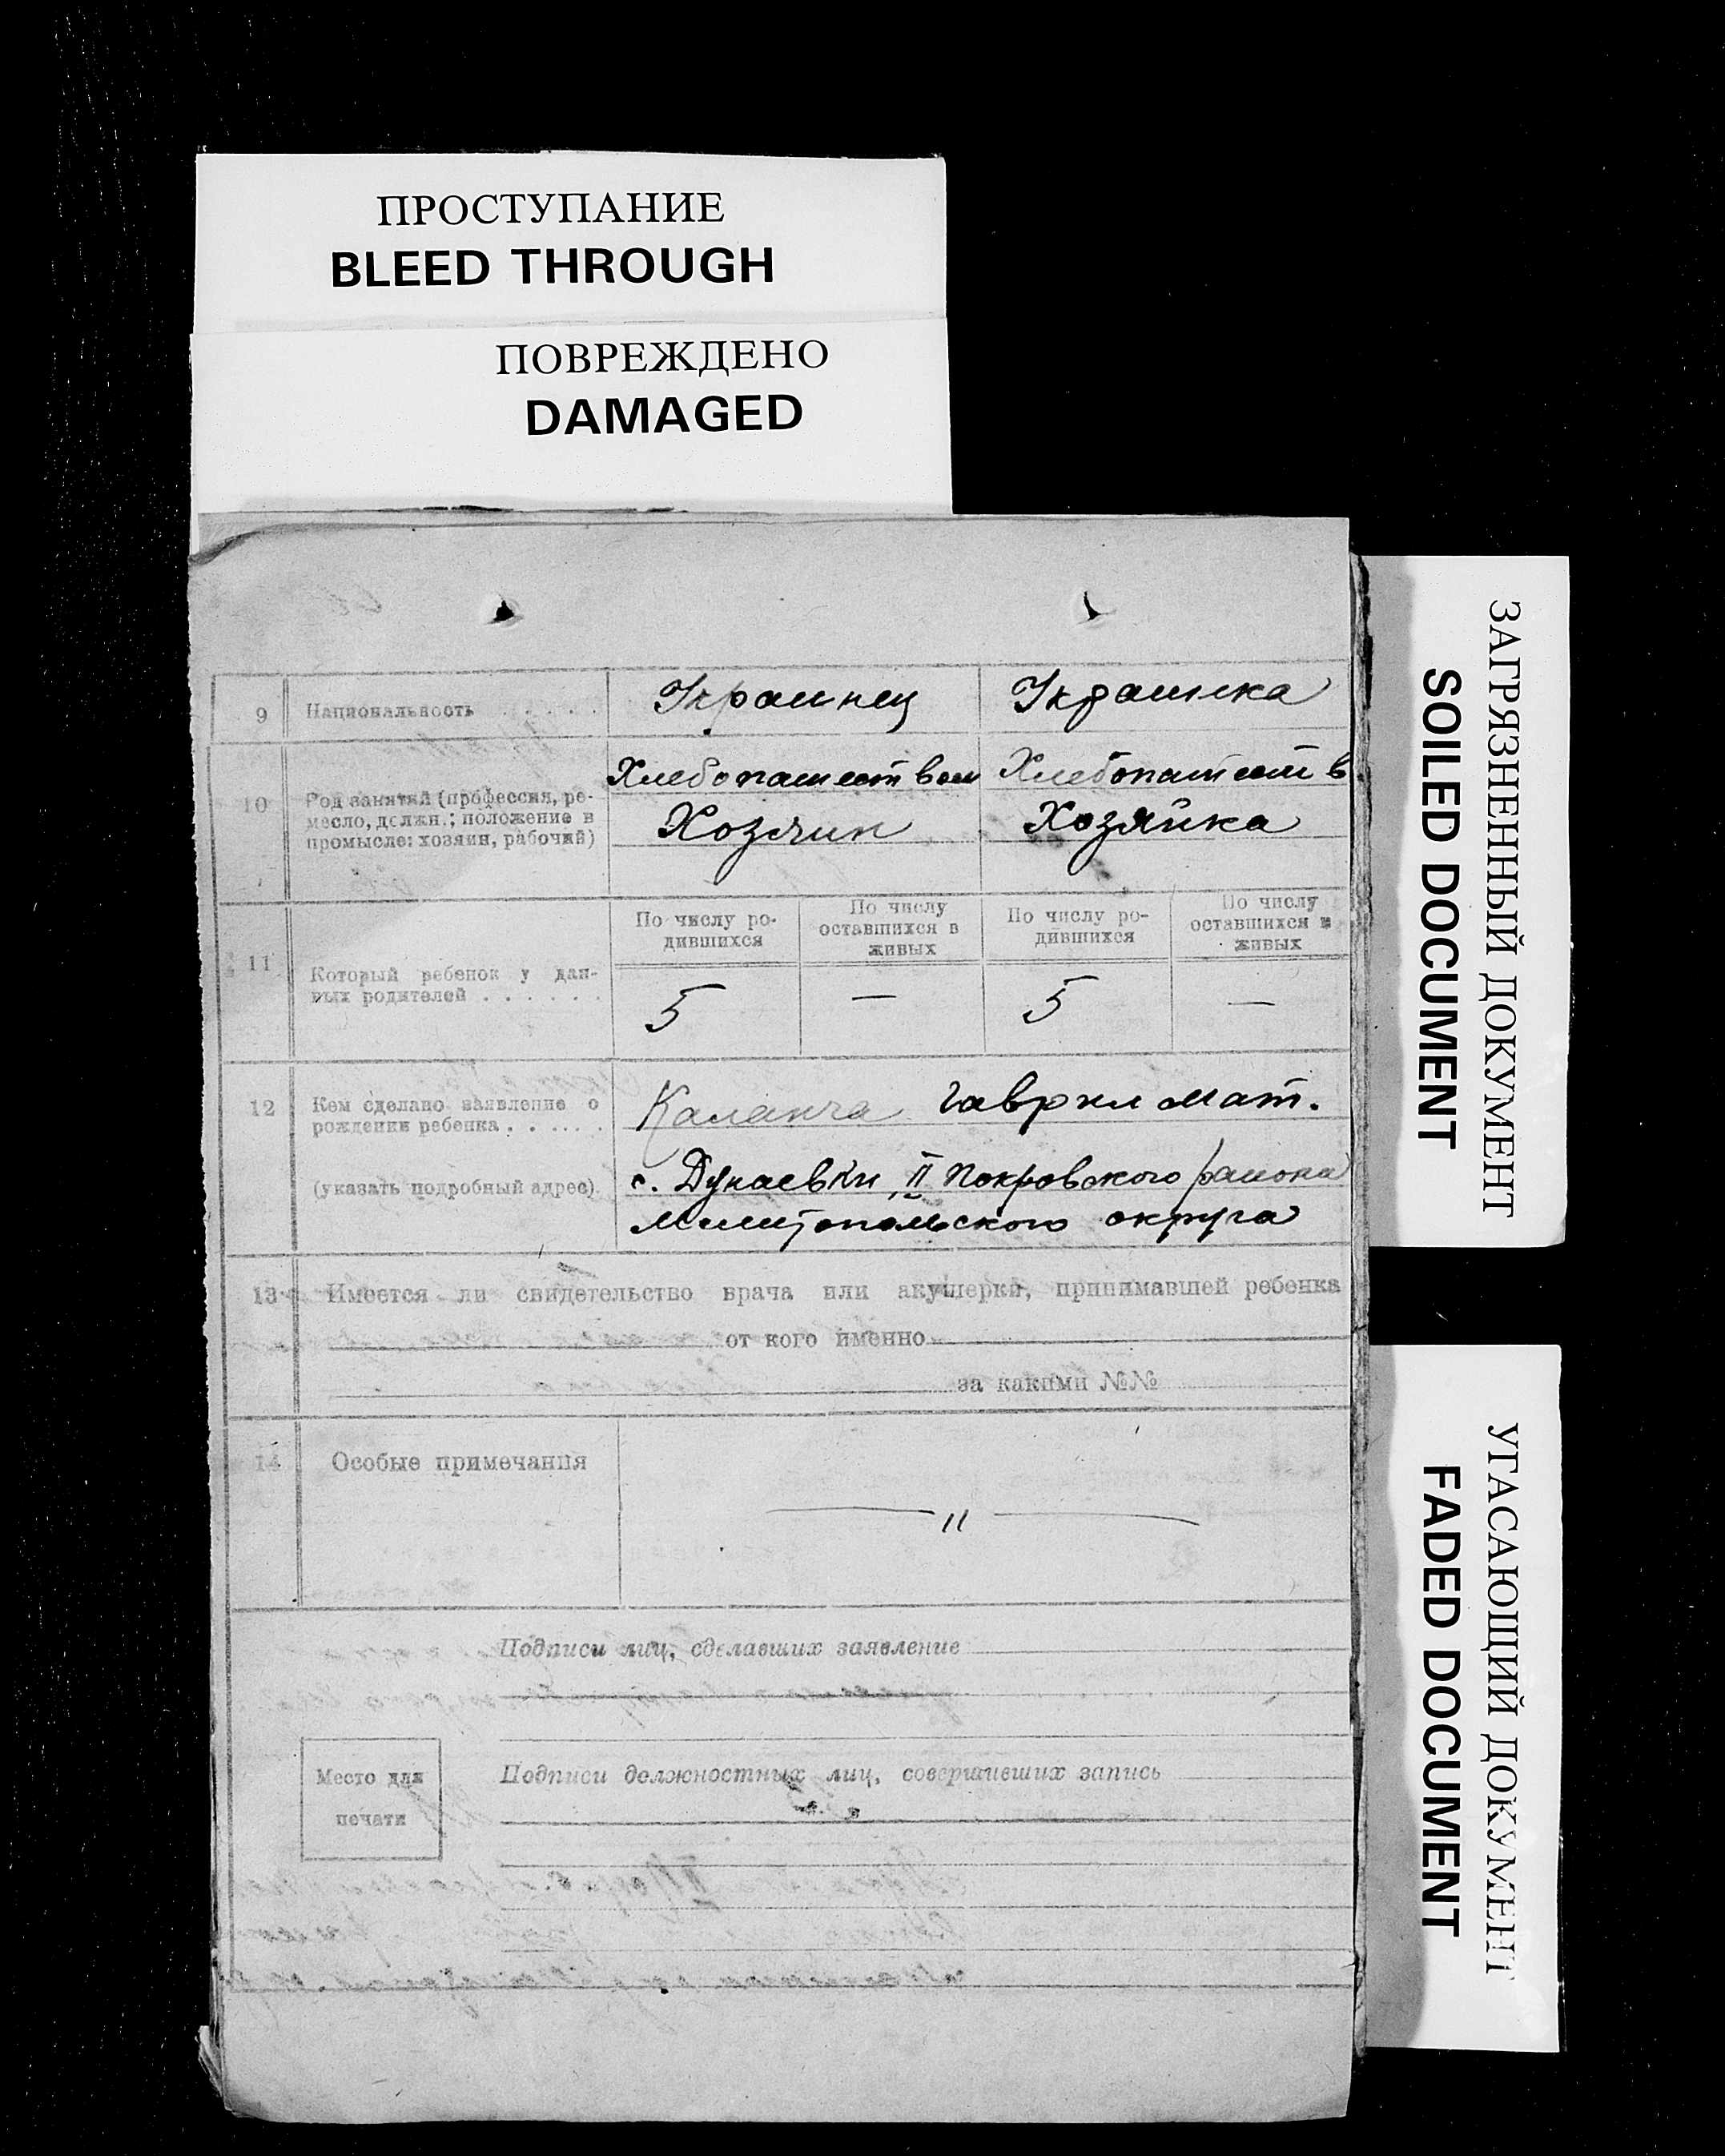 ПРОСТУПАНИЕ
BLEED THROUGH
ПОВРЕЖДЕНО
DAMAGED
9 Национальность . . . . . Украинец Украинка
10 Род занятий (профессия, ре-
месло, должн.; положение в
промысле: хозяин, рабочий)
Хлебопашеством Хлебопашеств
Хозяин Хозяйка
11 Который ребенок у дан-
ных родителей . . . . . .
По числу ро-
дившихся
По числу
оставшихся в
живых
По числу ро-
дившихся
По числу
оставшихся в
живых
5 — 5 —
12 Кем сделано заявление о
рождении ребенка . . . . . .
(указать подробный адрес)
Каланча Гаврил Мат.
с. Дунаевки, II Покровского района
Мелитопольского округа
13 Имеется ли свидетельство врача или акушерки, принимавшей ребенка
от кого именно
за какими №№
14 Особые примечания
— " —
Подписи лиц, сделавших заявление
Место для
печати
Подписи должностных лиц, совершивших запись
ЗАГРЯЗНЕННЫЙ ДОКУМЕНТ
SOILED DOCUMENT
УГАСАЮЩИЙ ДОКУМЕНТ
FADED DOCUMENT